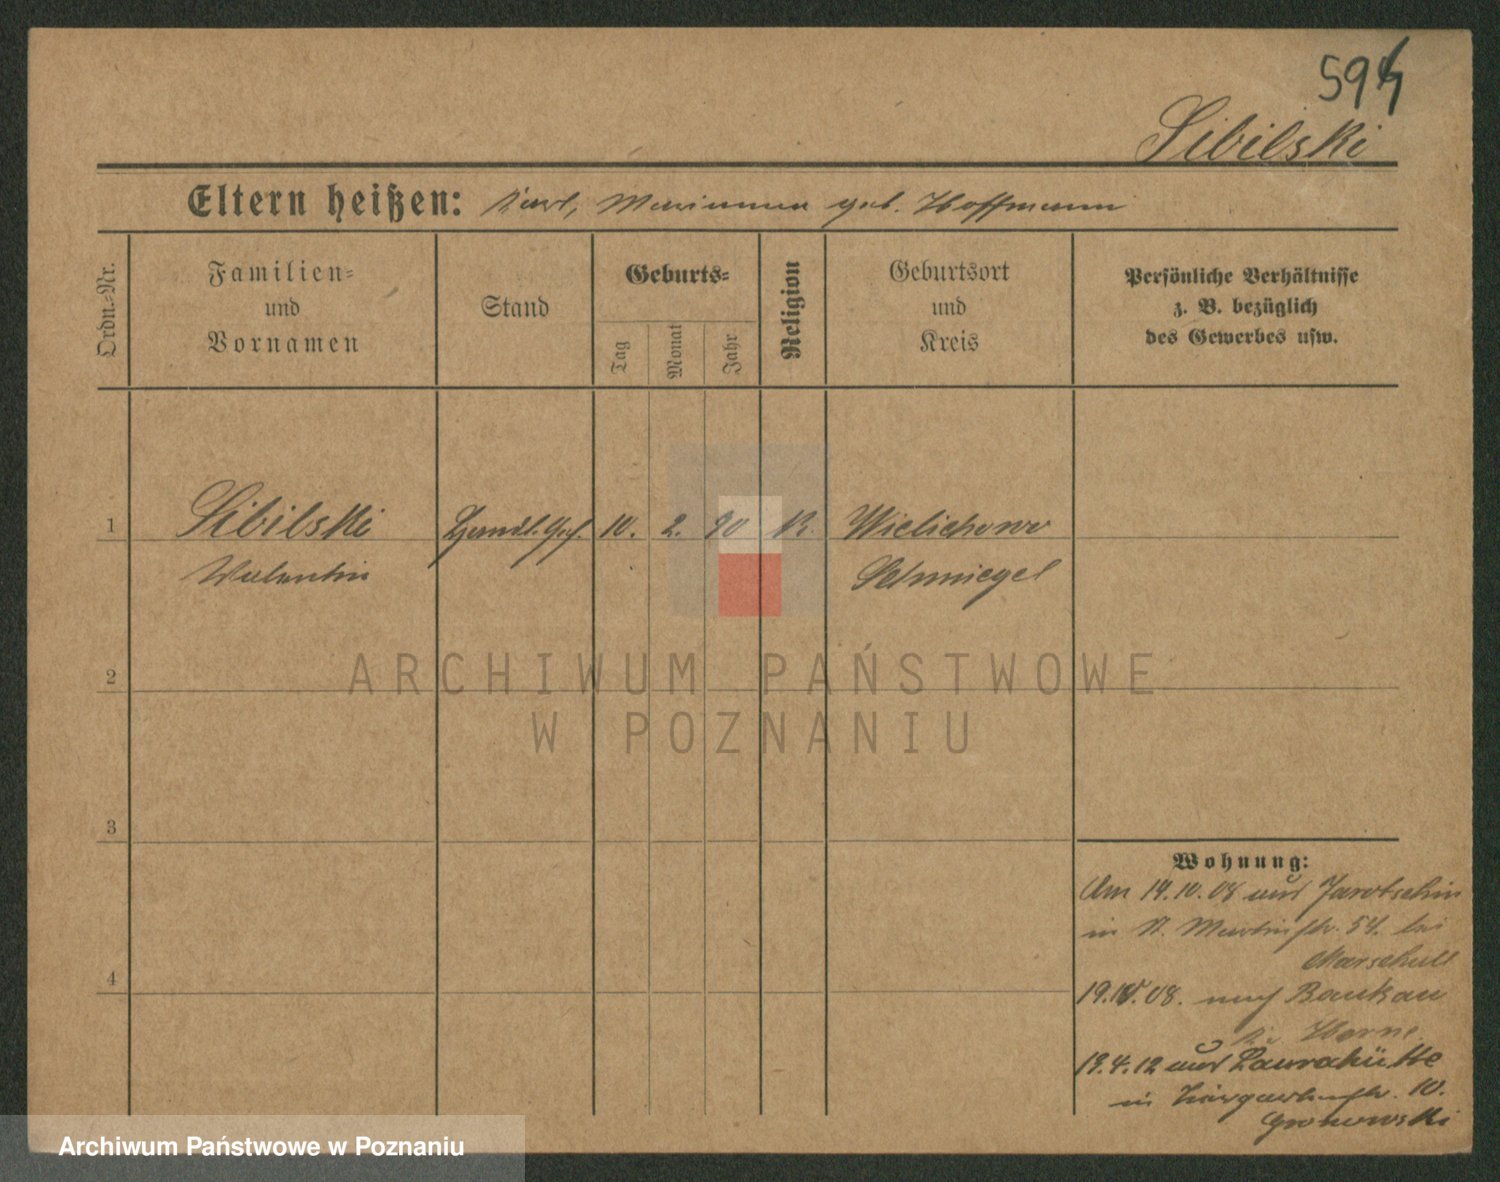 594
Sibilski
Eltern heißen: Karl, Marianna geb. Hoffmann
Ordn.=Nr.
Familien=
und
Vornamen
Stand
Geburts=
Tag
Monat
Jahr
Religion
Geburtsort
und
Kreis
Persönliche Verhältnisse
z. B. bezüglich
des Gewerbes usw.
1
Sibilski Handl. Geh. 10. 2. 90 K. Wielichowo
Valentin Schmiegel
2
ARCHIWUM PAŃSTWOWE
W POZNANIU
3
Wohnung:
Am 14.10.08 aus Jarotschin
in St. Martinstr. 54. bei
Marschall
4
19. .08. nach Baukau
Kr. Herne
19.4.12 aus Laurahütte
in 10.
Gronowski
Archiwum Państwowe w Poznaniu